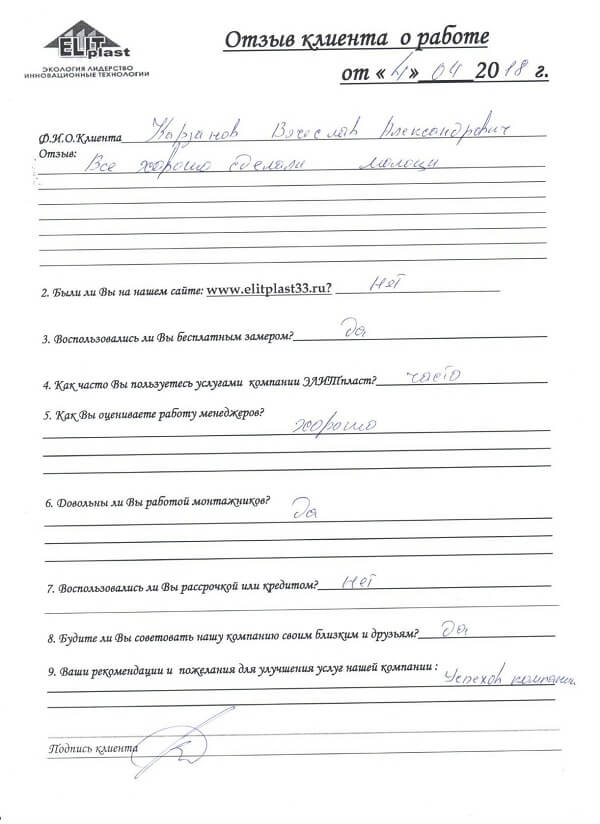 ELIT
plast
ЭКОЛОГИЯ ЛИДЕРСТВО
ИННОВАЦИОННЫЕ ТЕХНОЛОГИИ
Отзыв клиента о работе
от «4» 04 2018 г.
Ф.И.О.Клиента Вячеслав Александрович
Отзыв:
Все хорошо сделали молоци
2. Были ли Вы на нашем сайте: www.elitplast33.ru? Нет
3. Воспользовались ли Вы бесплатным замером? Да
4. Как часто Вы пользуетесь услугами компании ЭЛИТпласт? часто
5. Как Вы оцениваете работу менеджеров?
хорошо
6. Довольны ли Вы работой монтажников?
Да
7. Воспользовались ли Вы рассрочкой или кредитом? Нет
8. Будите ли Вы советовать нашу компанию своим близким и друзьям? Да
9. Ваши рекомендации и пожелания для улучшения услуг нашей компании :
Успехов компании.
Подпись клиента